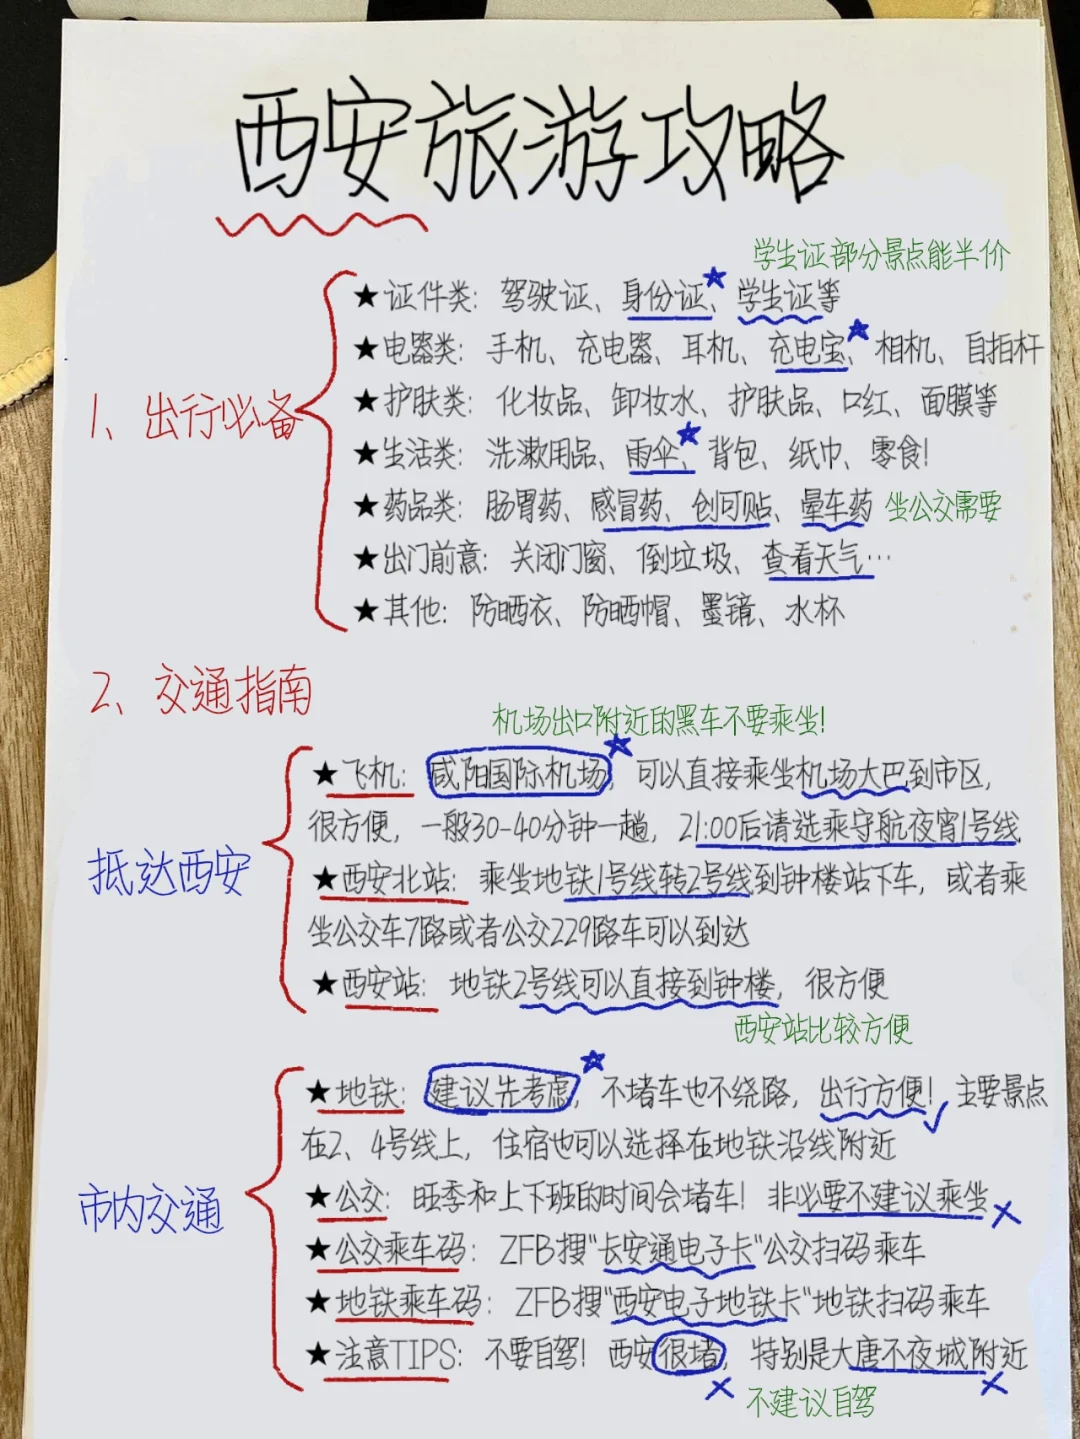 西安旅游攻略
学生证部分景点能半价
1、出行必备
★证件类：驾驶证、身份证、学生证等
★电器类：手机、充电器、耳机、充电宝、相机、自拍杆
★护肤类：化妆品、卸妆水、护肤品、口红、面膜等
★生活类：洗漱用品、雨伞、背包、纸巾、零食！
★药品类：肠胃药、感冒药、创可贴、晕车药 坐公交需要
★出门前意：关闭门窗、倒垃圾、查看天气…
★其他：防晒衣、防晒帽、墨镜、水杯
2、交通指南
机场出口附近的黑车不要乘坐！
抵达西安
★飞机：咸阳国际机场，可以直接乘坐机场大巴到市区，
很方便，一般30-40分钟一趟，21:00后请选乘守航夜宵1号线
★西安北站：乘坐地铁1号线转2号线到钟楼站下车，或者乘
坐公交车7路或者公交229路车可以到达
★西安站：地铁2号线可以直接到钟楼，很方便
西安站比较方便
市内交通
★地铁：建议先考虑，不堵车也不绕路，出行方便！主要景点
在2、4号线上，住宿也可以选择在地铁沿线附近
★公交：旺季和上下班的时间会堵车！非必要不建议乘坐
★公交乘车码：ZFB搜"长安通电子卡"公交扫码乘车
★地铁乘车码：ZFB搜"西安电子地铁卡"地铁扫码乘车
★注意TIPS：不要自驾！西安很堵，特别是大唐不夜城附近
不建议自驾